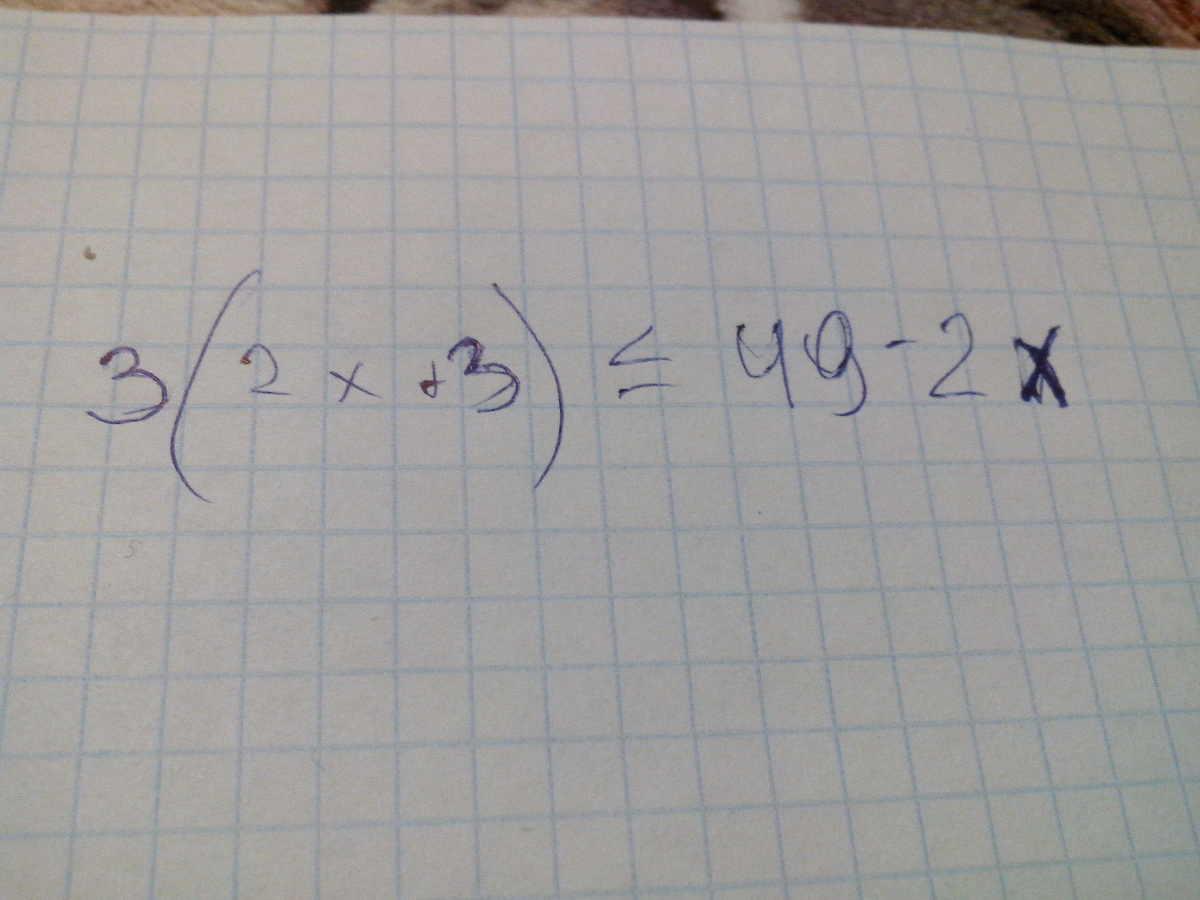 3(2x+3) ≤ 49-2x